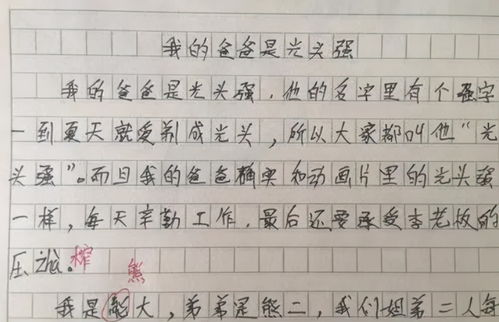 我的爸爸是光头强
我的爸爸是光头强.他的名字里有个强字
一到夏天就爱剃成光头,所以大家都叫他"光
头强"。而且我的爸爸确实和动画片里的光头强
一样,每天辛勤工作.最后还要承受李老板的
压zhà。榨
熊
我是大,弟弟是熊二,我们姐弟二人每